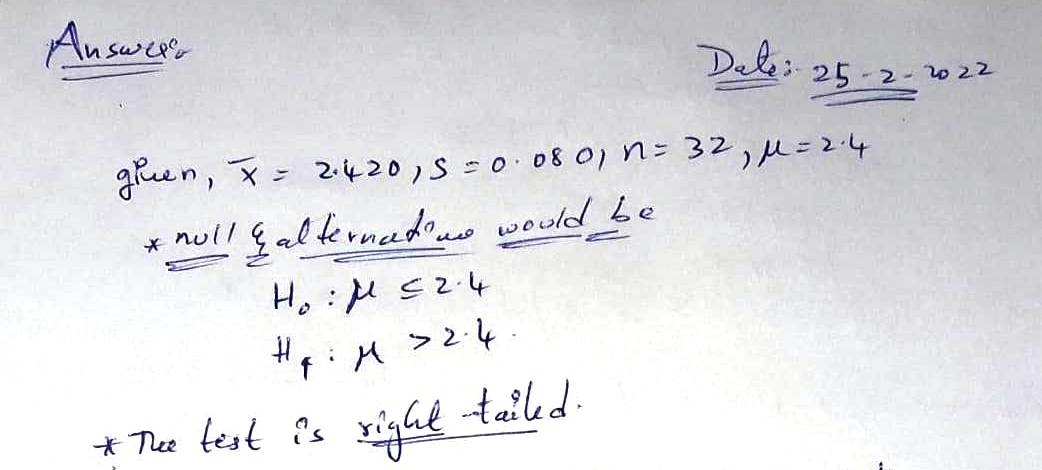 Answer:
Date: 25-2-2022
given, x̄ = 2.420, S = 0.080, n = 32, μ = 2.4
* null & alternatives would be
H₀ : μ ≤ 2.4
H₁ : μ > 2.4.
* The test is right-tailed.